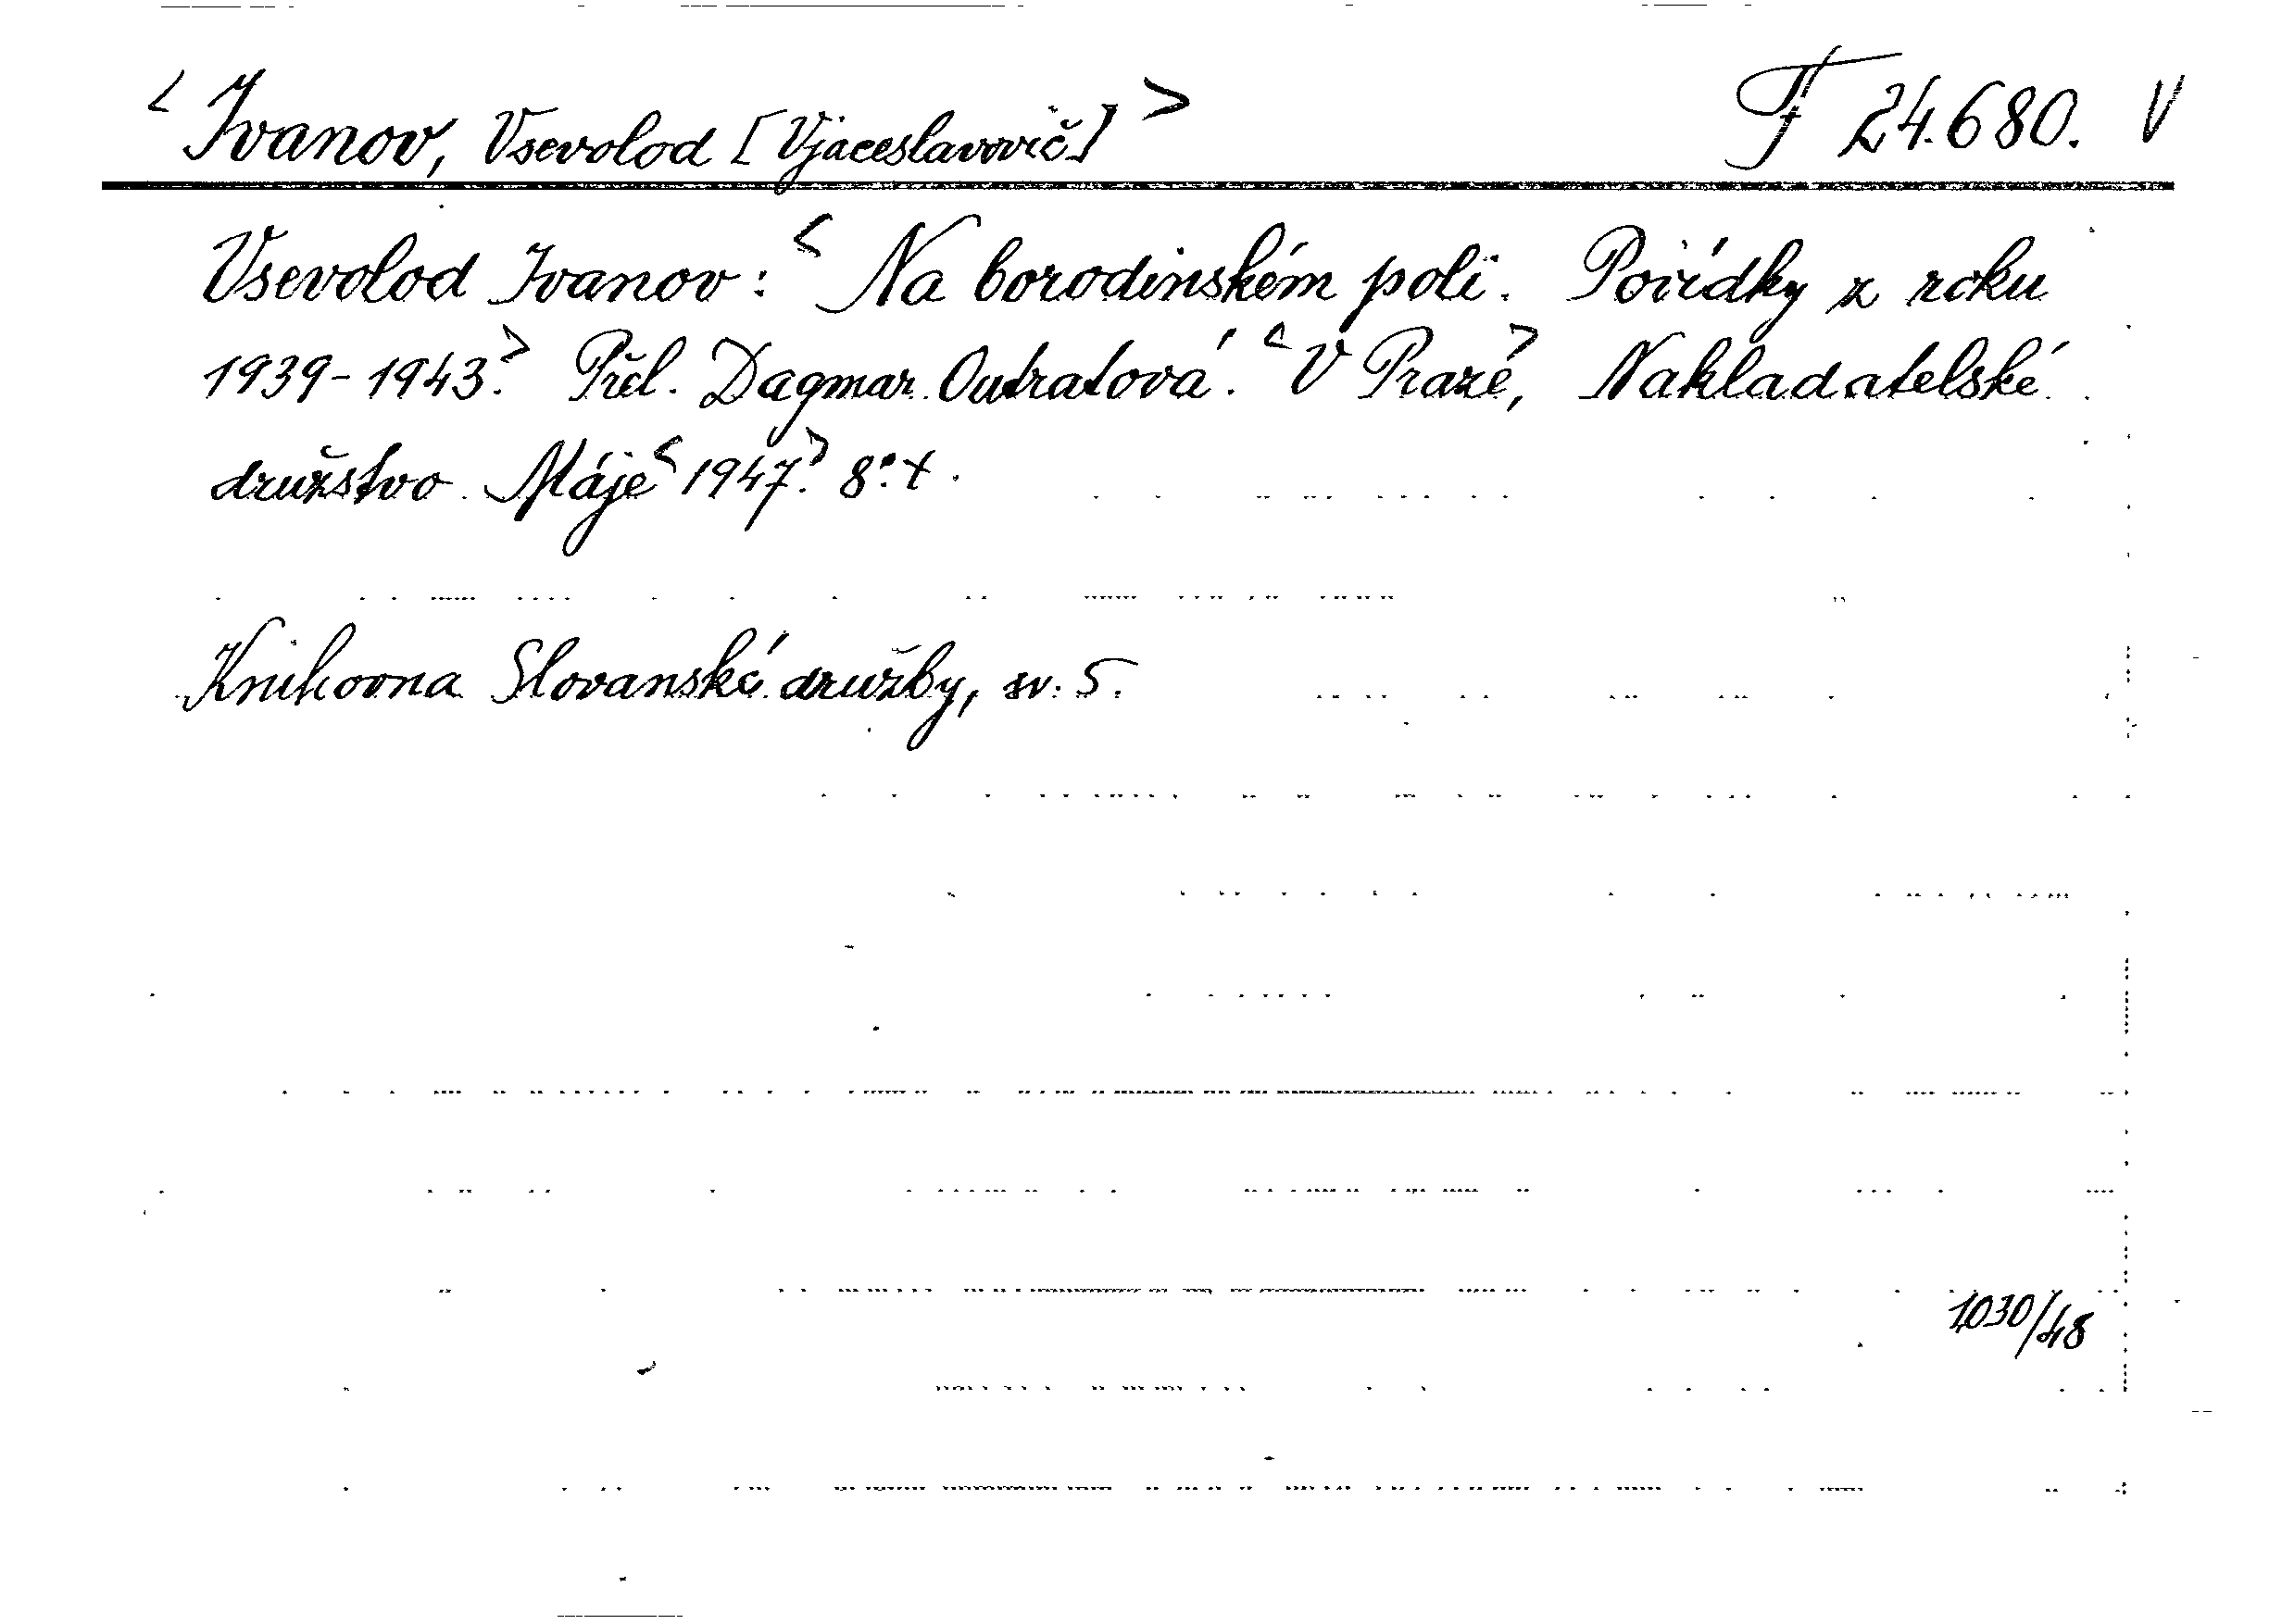 < Ivanov, Vsevolod [Vjaceslavovič] > F 24.680. V
Vsevolod Ivanov: < Na borodinském poli. Povídky z roku
1939-1943.> Přel. Dagmar Outratová. < V Praze, > Nakladatelské
družstvo Máje < 1947.> 8°. +.
Knihovna Slovanské družby, sv. 5.
1030/48